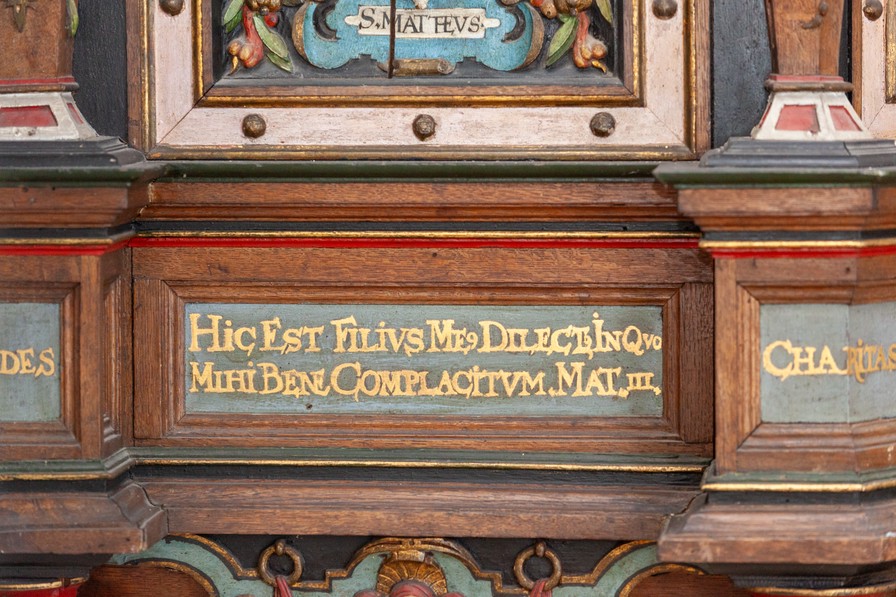 S. MATTEVS.
DES
HiC EST FILIVS MEꝰ DILECTꝰ IN QVO
MIHI BENE COMPLACITVM. MAT. III.
CHARITAS